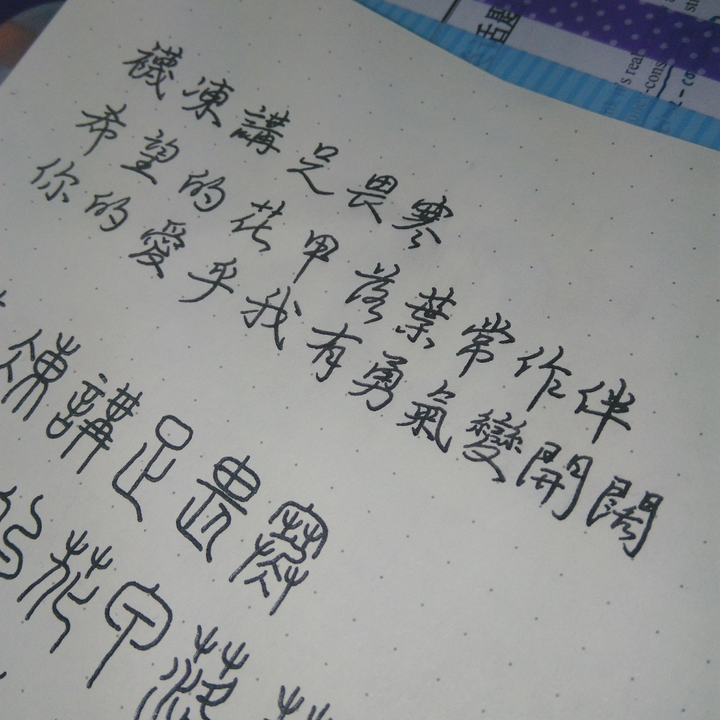 襪凍講足畏寒
希望的花甲落葉常作伴
你的愛乎我有勇氣變開闊
凍講足畏寒
的花甲落葉
活
's real